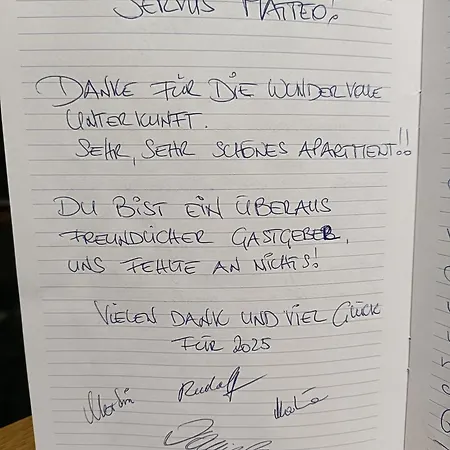 SERVUS MATTEO!
DANKE FÜR DIE WUNDERVOLLE
UNTERKUNFT.
SEHR, SEHR SCHÖNES APARTMENT!!
DU BIST EIN ÜBERAUS
FREUNDLICHER GASTGEBER,
UNS FEHLTE AN NICHTS!
VIELEN DANK UND VIEL GLÜCK
FÜR 2025
Rudolf